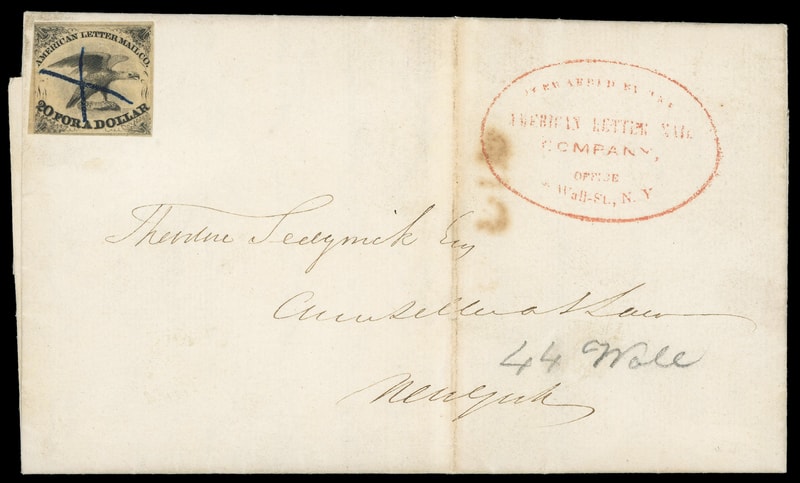 AMERICAN LETTER MAIL CO.
20 FOR A DOLLAR
FORWARDED BY THE
AMERICAN LETTER MAIL
COMPANY,
OFFICE
Wall-St., N. Y
Theodore Sedgwick Esq
Counsellor at Law
44 Wall
New York